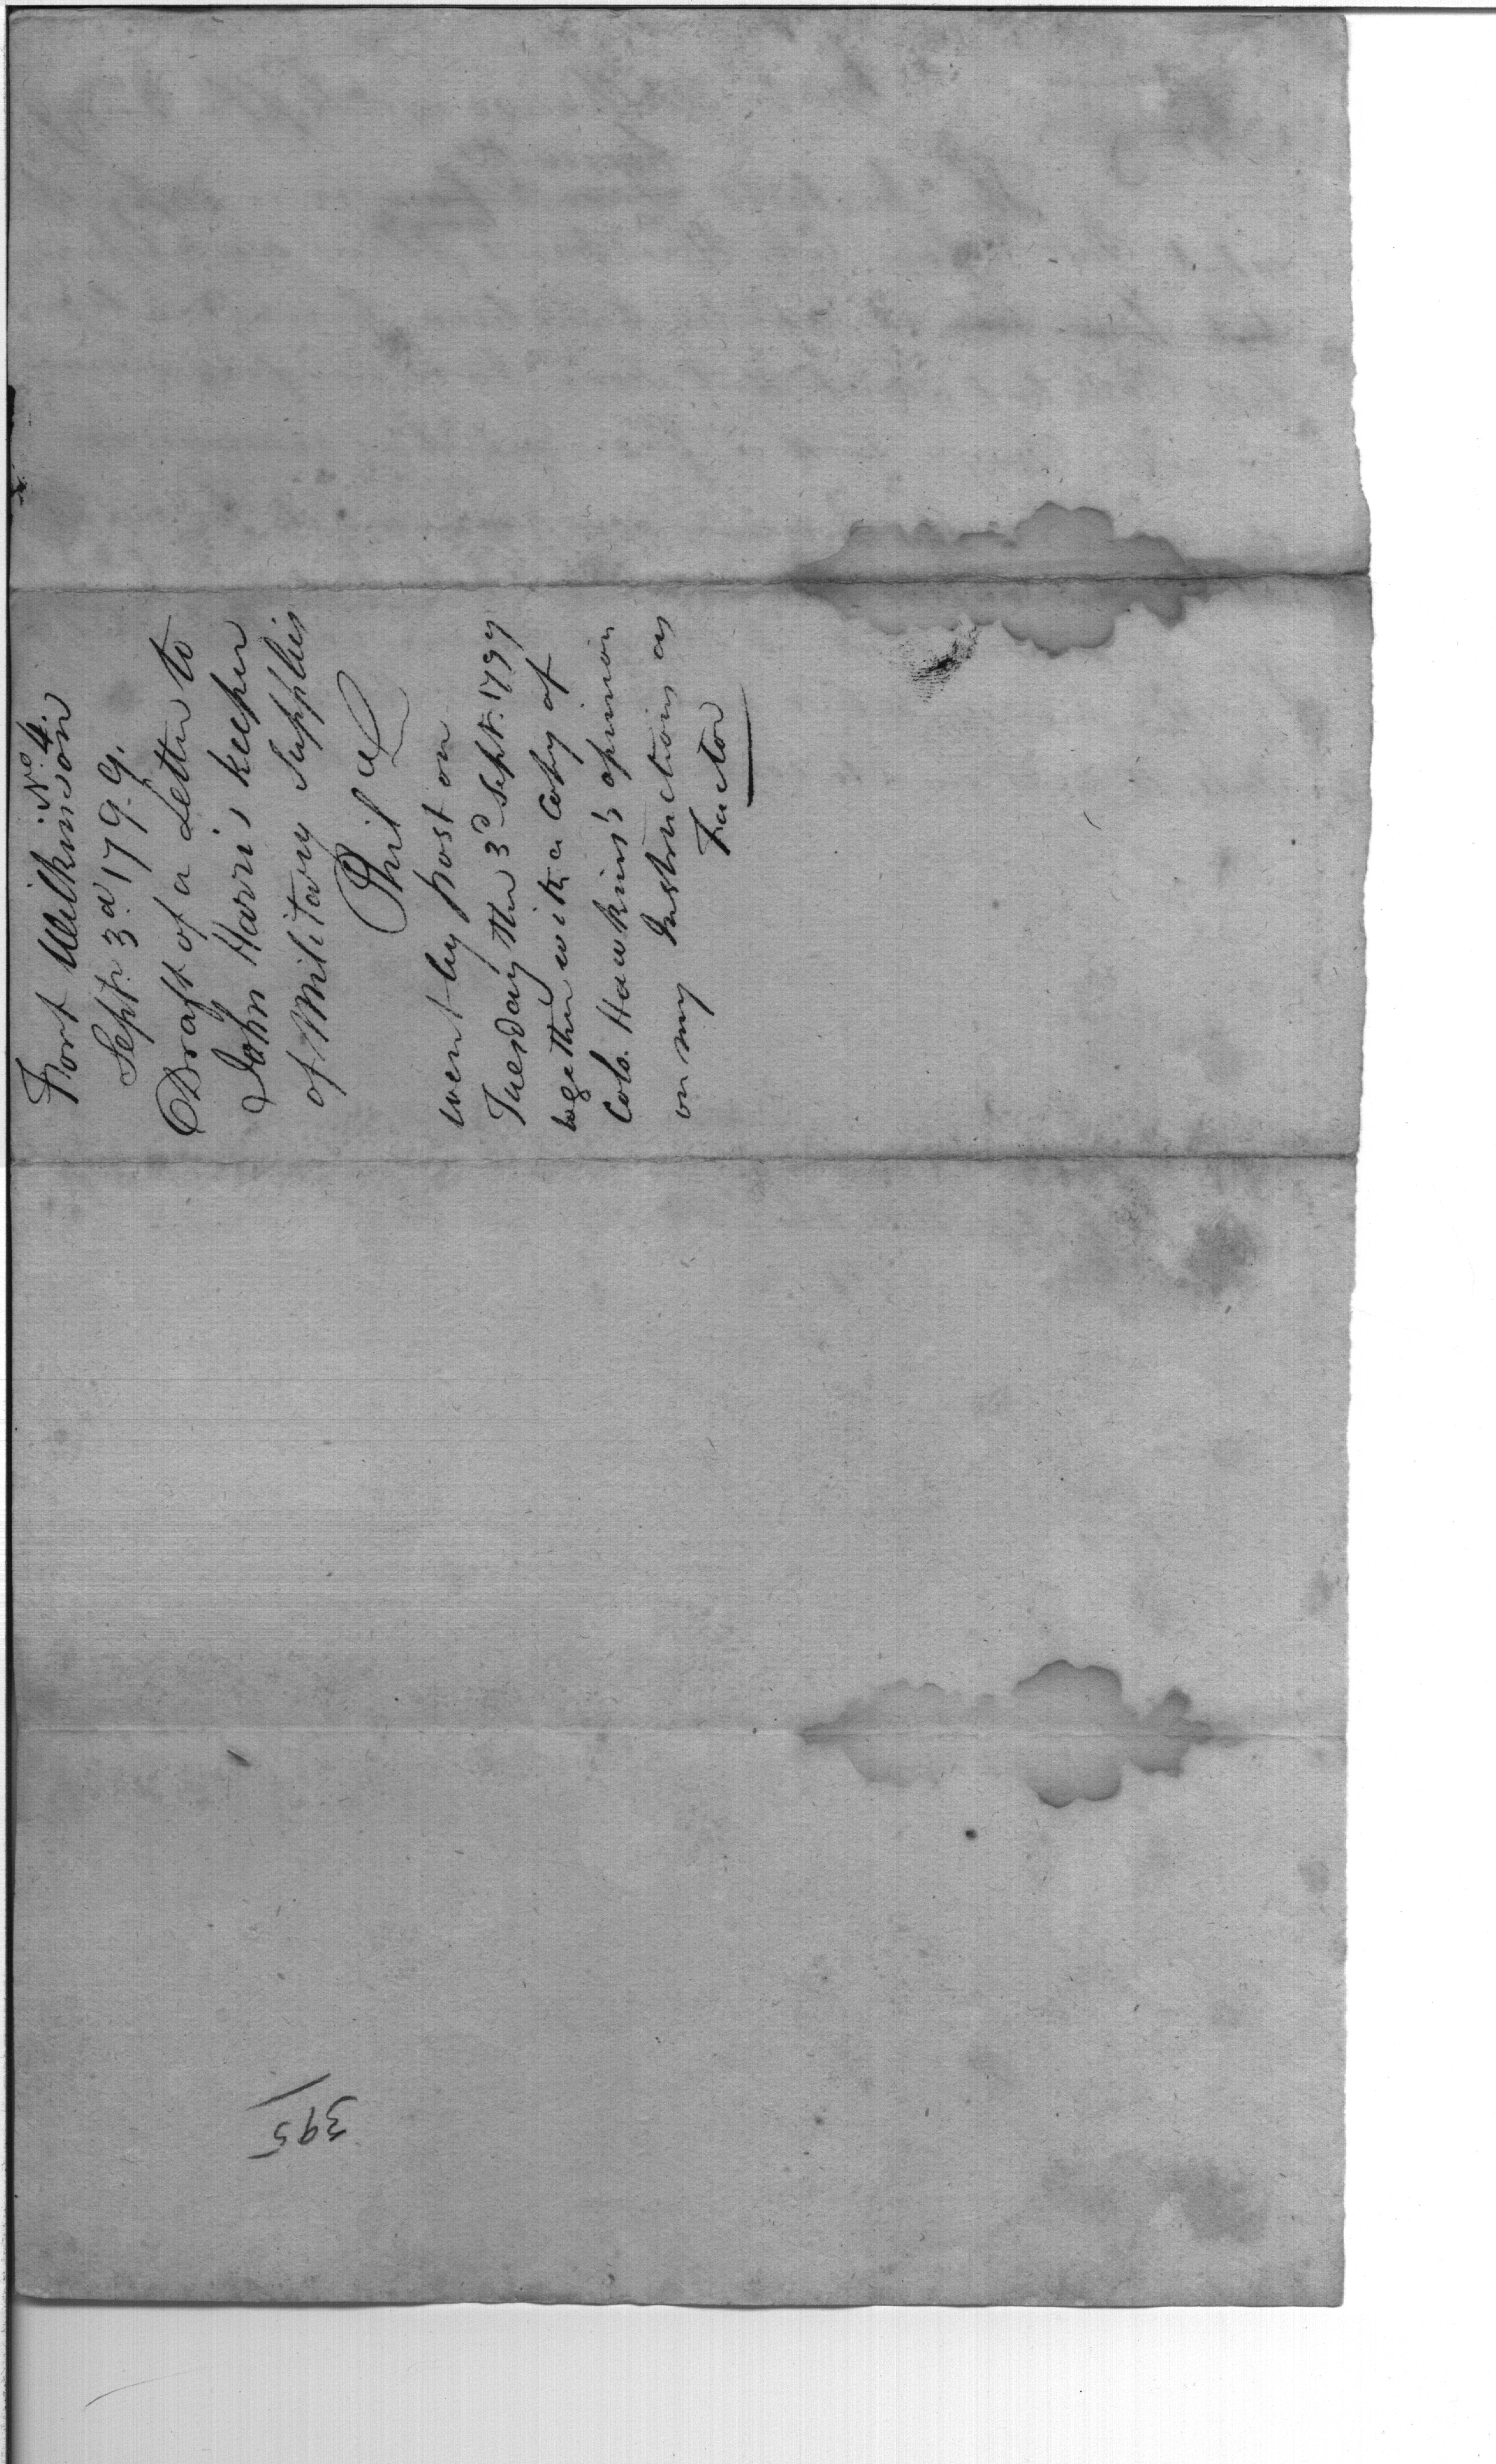 No. 4.
Fort Wilkinson
Sept. 3d 1799.
Draft of a Letter to
John Harris keeper
of Military Supplies
Phila
went by post on
Tuesday the 3d Sept. 1799
together with a Coby of
Colo. Hawkins's opinion
on my Instructions as
Factor
395